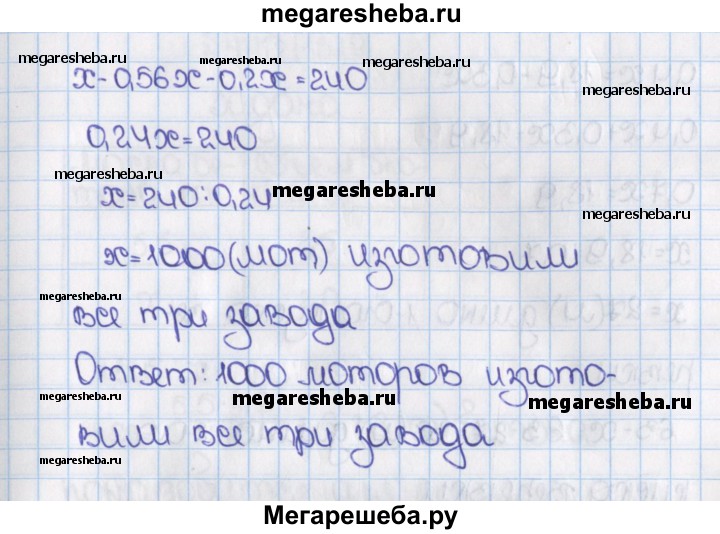 megaresheba.ru
megaresheba.ru megaresheba.ru megaresheba.ru
x - 0,56x - 0,2x = 240
megaresheba.ru
0,24x = 240
megaresheba.ru
x = 240 : 0,24 megaresheba.ru
megaresheba.ru
x = 1000 (мот) изготовили
megaresheba.ru
все три завода
Ответ: 1000 моторов изгото-
megaresheba.ru megaresheba.ru megaresheba.ru
вили все три завода
megaresheba.ru
Мегарешеба.ру